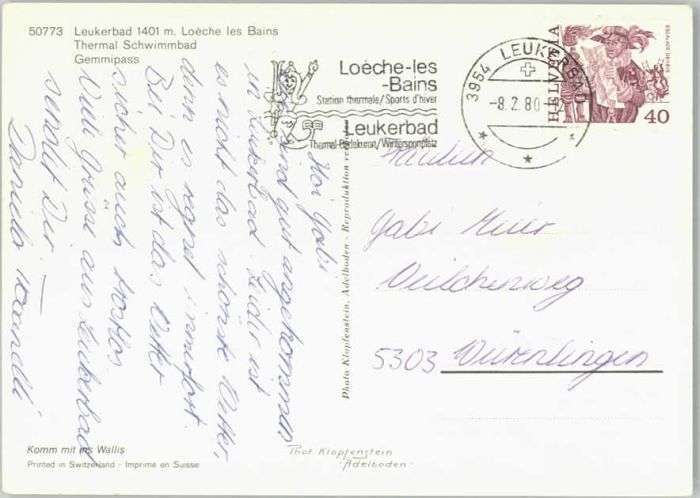 50773 Leukerbad 1401 m. Loèche les Bains
Thermal Schwimmbad
Gemmipass
Loèche-les
-Bains
Station thermale/Sports d'hiver
Leukerbad
Thermal-Badekurort/Wintersportplatz
3954 LEUKERBAD
-8.2.80
HELVETIA
ESCALADE GENÈVE
40
Hoi Gabi
gut angekommen
in Leukerbad. Leider ist
nicht das schönste Wetter,
denn es regnet immerfort.
Bei Dir ist das Wetter
sicher auch trostlos
Viele Grüsse aus Leukerbad
sendet Dir
Daniela
Fräulein
Gabi Meier
Veilchenweg
5303 Würenlingen
Photo Klopfenstein, Adelboden - Reproduktion verboten
Komm mit ins Wallis
Printed in Switzerland - Imprimé en Suisse
Phot Klopfenstein
Adelboden